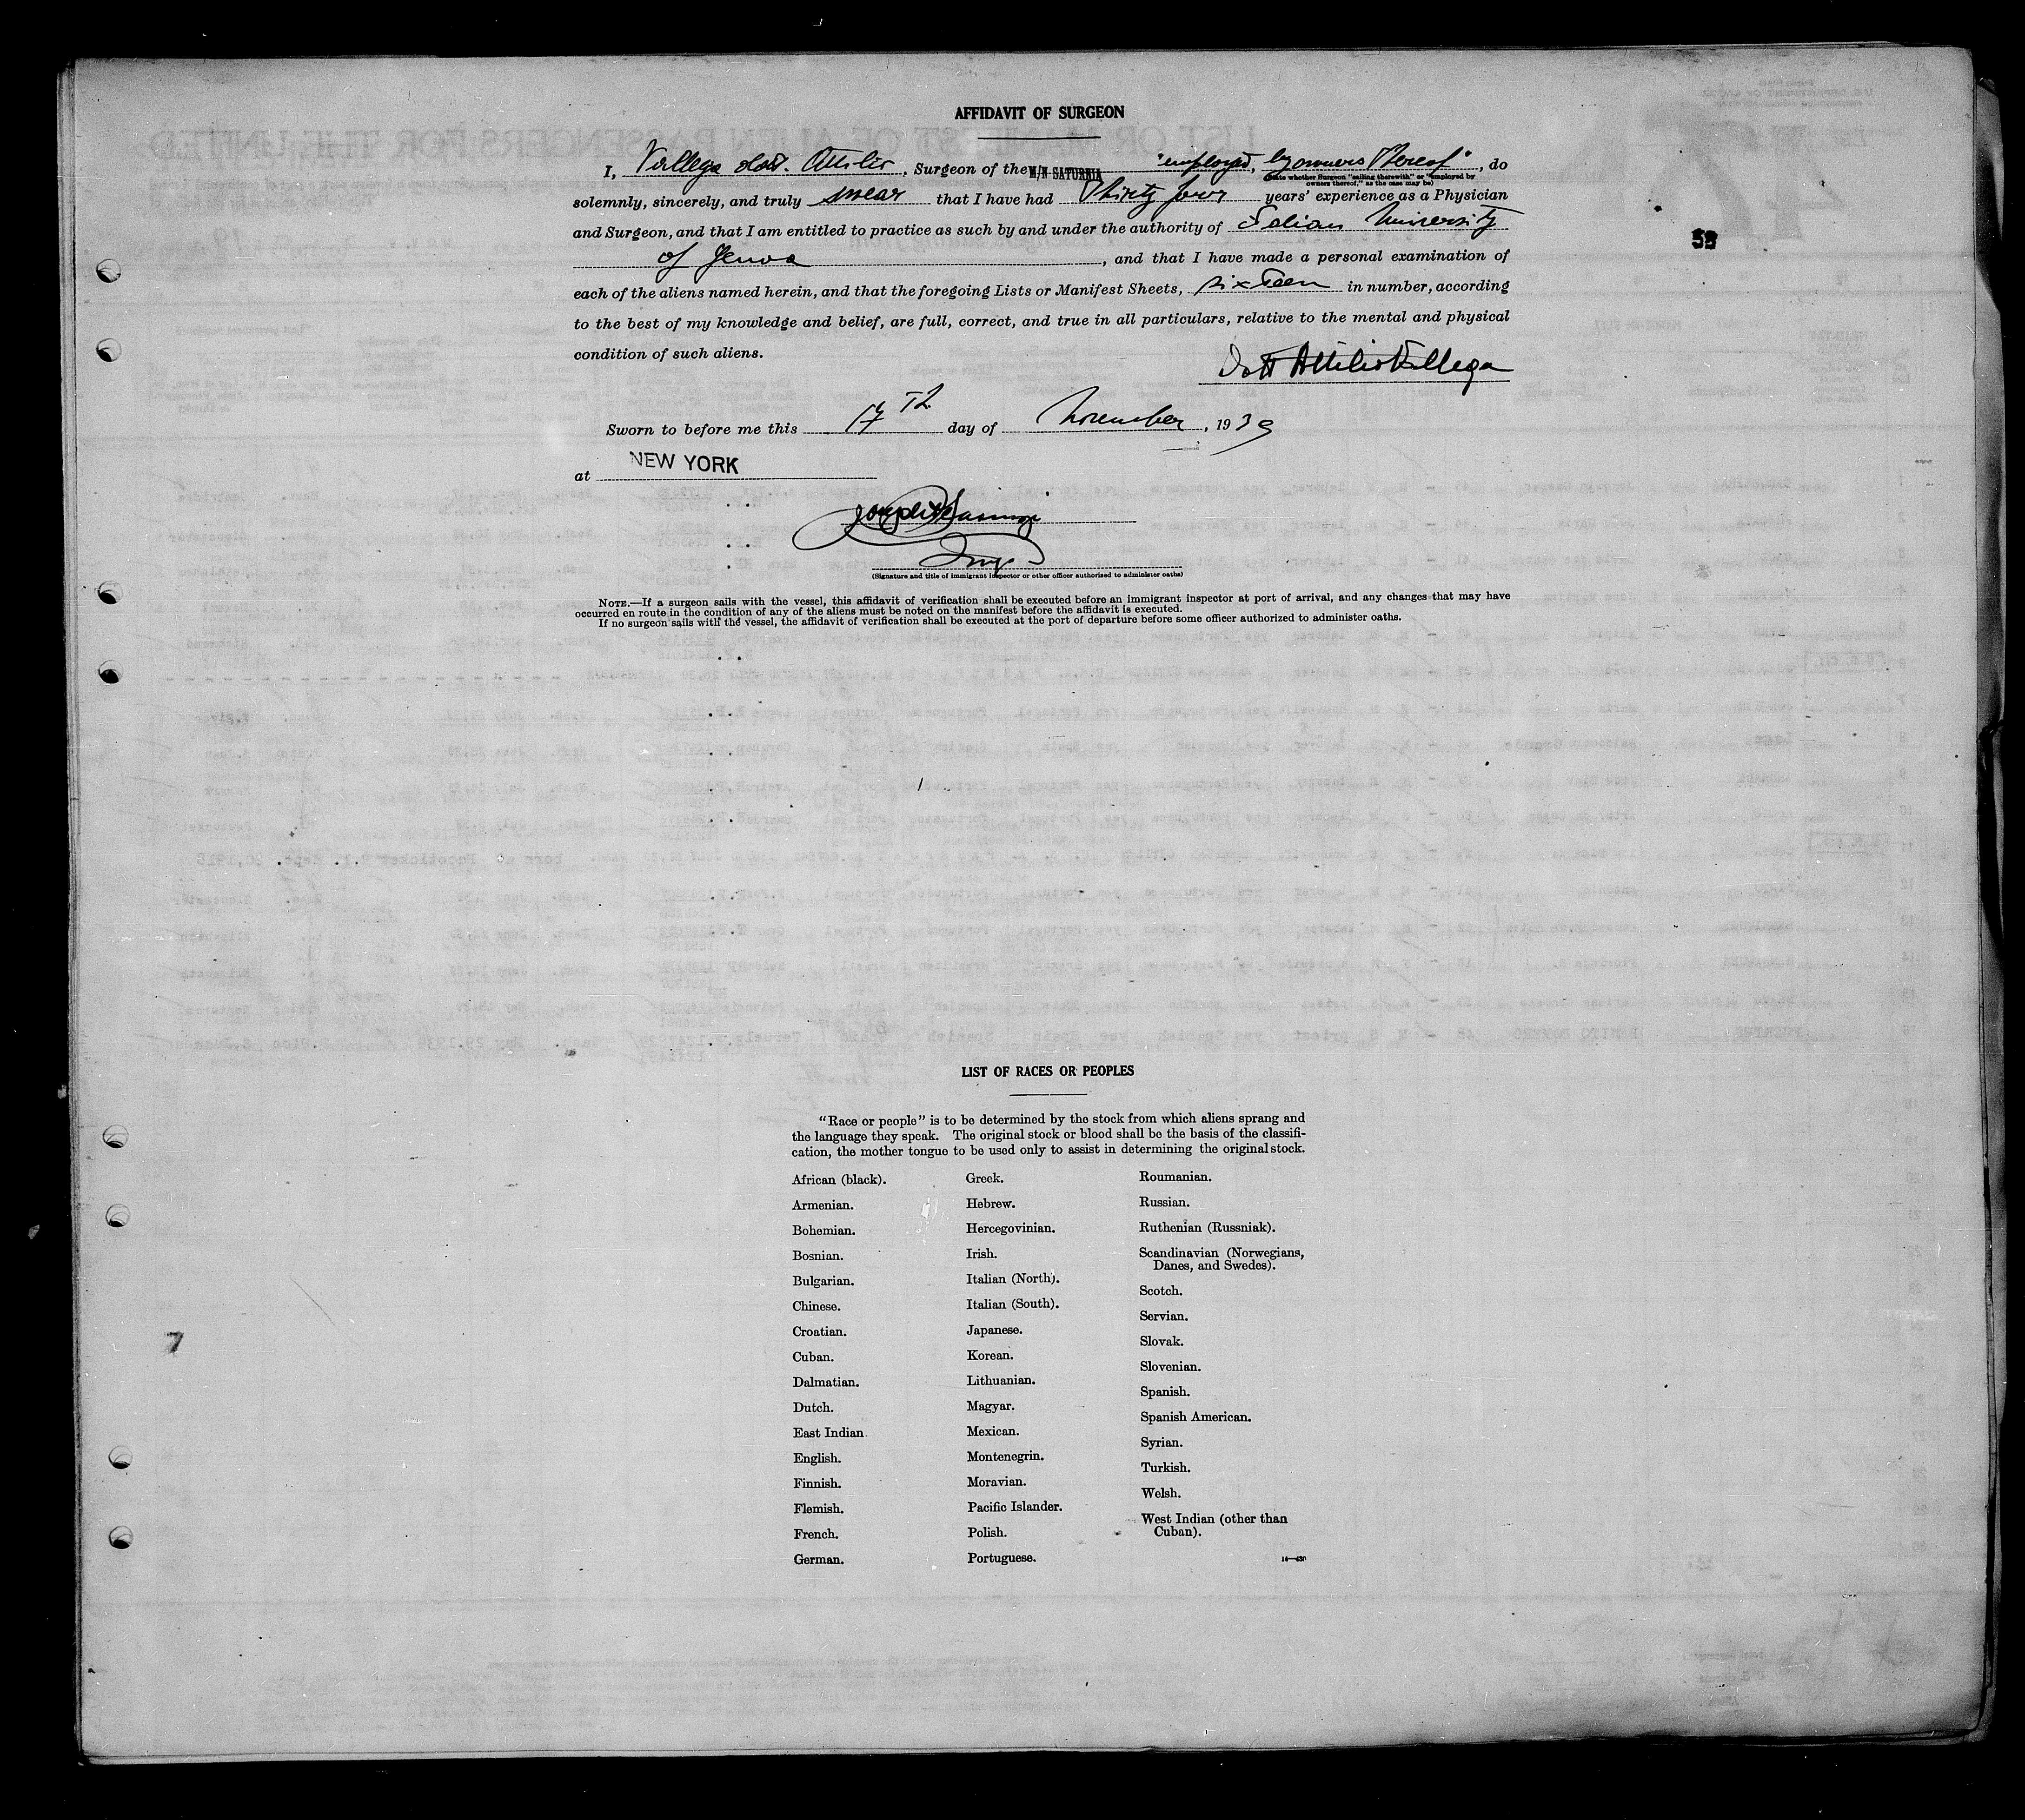 AFFIDAVIT OF SURGEON
I, Vallega dott. Attilio, Surgeon of the M/N SATURNIA "employed, by owners Thereof", do
(State whether Surgeon "sailing therewith" or "employed by
owners thereof," as the case may be)
solemnly, sincerely, and truly swear that I have had Thirty four years' experience as a Physician
and Surgeon, and that I am entitled to practice as such by and under the authority of Italian University
of Genoa, and that I have made a personal examination of
each of the aliens named herein, and that the foregoing Lists or Manifest Sheets, sixteen in number, according
to the best of my knowledge and belief, are full, correct, and true in all particulars, relative to the mental and physical
condition of such aliens.
Dott Attilio Vallega
Sworn to before me this 17th day of November, 1939
at NEW YORK
Insp
(Signature and title of immigrant inspector or other officer authorized to administer oaths)
NOTE.—If a surgeon sails with the vessel, this affidavit of verification shall be executed before an immigrant inspector at port of arrival, and any changes that may have
occurred en route in the condition of any of the aliens must be noted on the manifest before the affidavit is executed.
If no surgeon sails with the vessel, the affidavit of verification shall be executed at the port of departure before some officer authorized to administer oaths.
LIST OF RACES OR PEOPLES
"Race or people" is to be determined by the stock from which aliens sprang and
the language they speak. The original stock or blood shall be the basis of the classifi-
cation, the mother tongue to be used only to assist in determining the original stock.
African (black).
Armenian.
Bohemian.
Bosnian.
Bulgarian.
Chinese.
Croatian.
Cuban.
Dalmatian.
Dutch.
East Indian
English.
Finnish.
Flemish.
French.
German.
Greek.
Hebrew.
Hercegovinian.
Irish.
Italian (North).
Italian (South).
Japanese.
Korean.
Lithuanian.
Magyar.
Mexican.
Montenegrin.
Moravian.
Pacific Islander.
Polish.
Portuguese.
Roumanian.
Russian.
Ruthenian (Russniak).
Scandinavian (Norwegians,
Danes, and Swedes).
Scotch.
Servian.
Slovak.
Slovenian.
Spanish.
Spanish American.
Syrian.
Turkish.
Welsh.
West Indian (other than
Cuban).
7